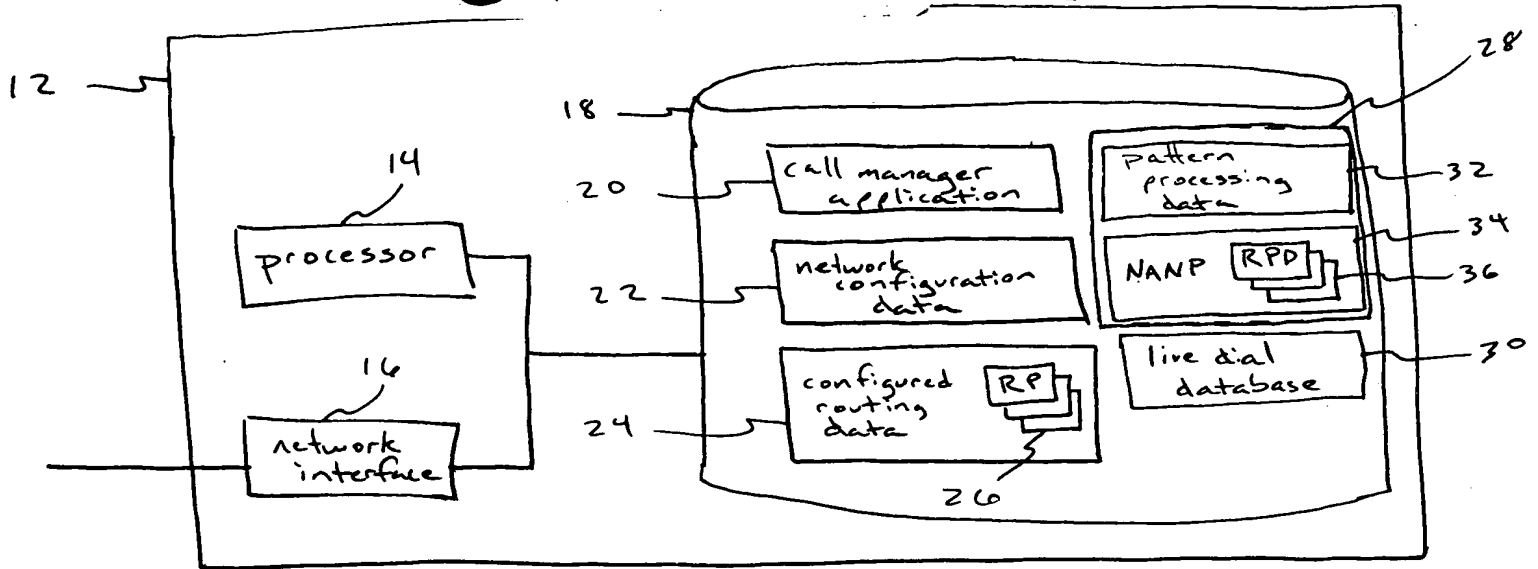 12
14
processor
16
network
interface
18
20
call manager
application
22
network
configuration
data
24
configured
routing
data
RP
26
28
pattern
processing
data
32
34
NANP
RPD
36
live dial
database
30